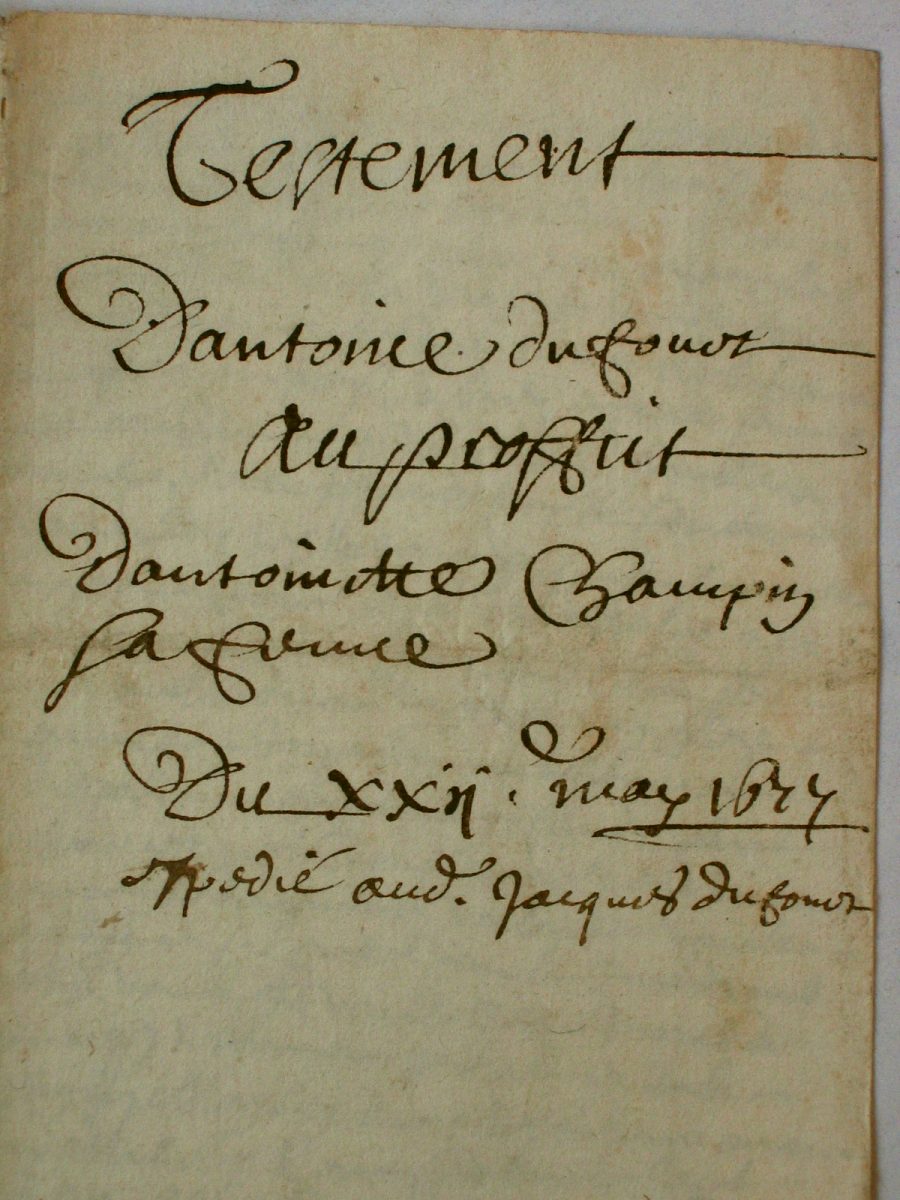 Testement
Dantoine dufourt
Au proffit
Dantoinette Champin
sa femme
Du xxij.e may 1677
expedié aud. Jacques dufourt